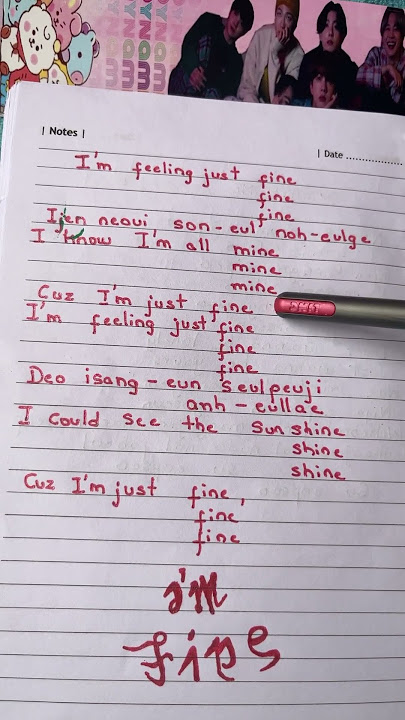 | Notes |
| Date ..................
I'm feeling just fine
fine
fine
Ijen neoui son-eul noh-eulge
I know I'm all mine
mine
mine
Cuz I'm just fine
I'm feeling just fine
fine
fine
Deo isang-eun seulpeuji
anh-eullae
I could see the sunshine
shine
shine
Cuz I'm just fine,
fine
fine
I'm
fine